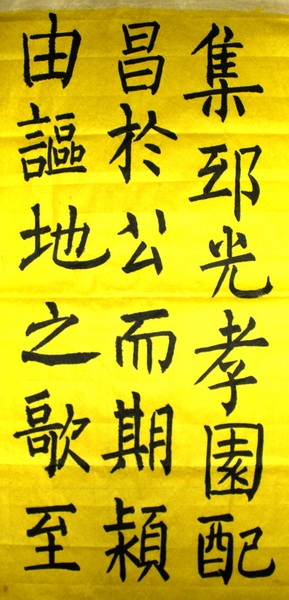 集邳光孝園配
昌於公而期穎
由謳地之歌至